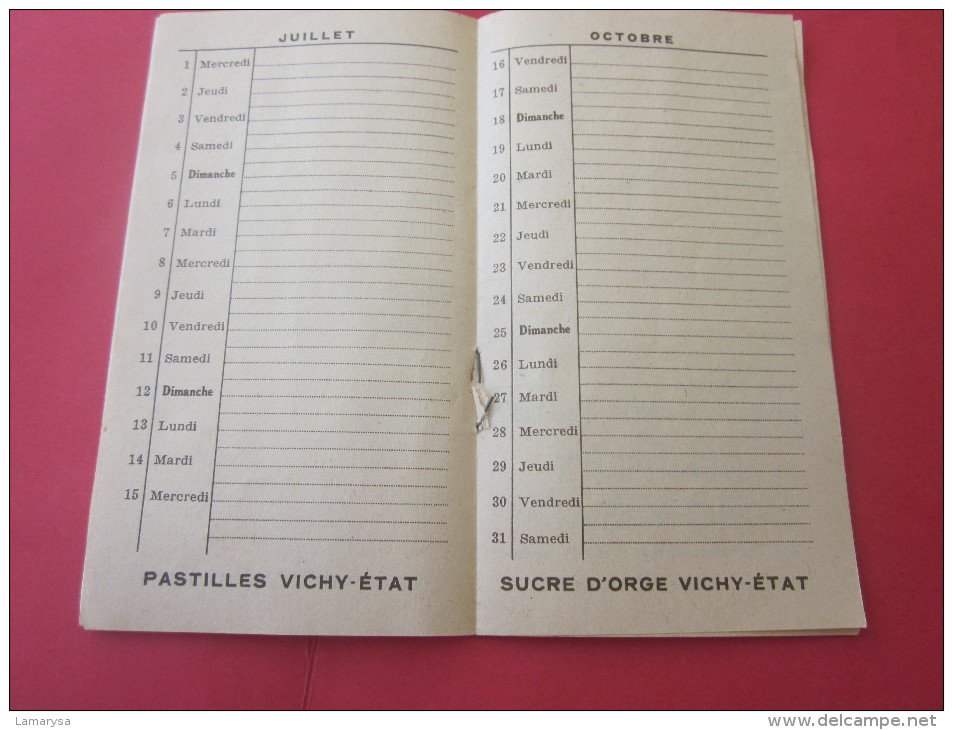 JUILLET
1 Mercredi
2 Jeudi
3 Vendredi
4 Samedi
5 Dimanche
6 Lundi
7 Mardi
8 Mercredi
9 Jeudi
10 Vendredi
11 Samedi
12 Dimanche
13 Lundi
14 Mardi
15 Mercredi
PASTILLES VICHY-ÉTAT
OCTOBRE
16 Vendredi
17 Samedi
18 Dimanche
19 Lundi
20 Mardi
21 Mercredi
22 Jeudi
23 Vendredi
24 Samedi
25 Dimanche
26 Lundi
27 Mardi
28 Mercredi
29 Jeudi
30 Vendredi
31 Samedi
SUCRE D'ORGE VICHY-ÉTAT
Lamarysa
www.delcampe.net